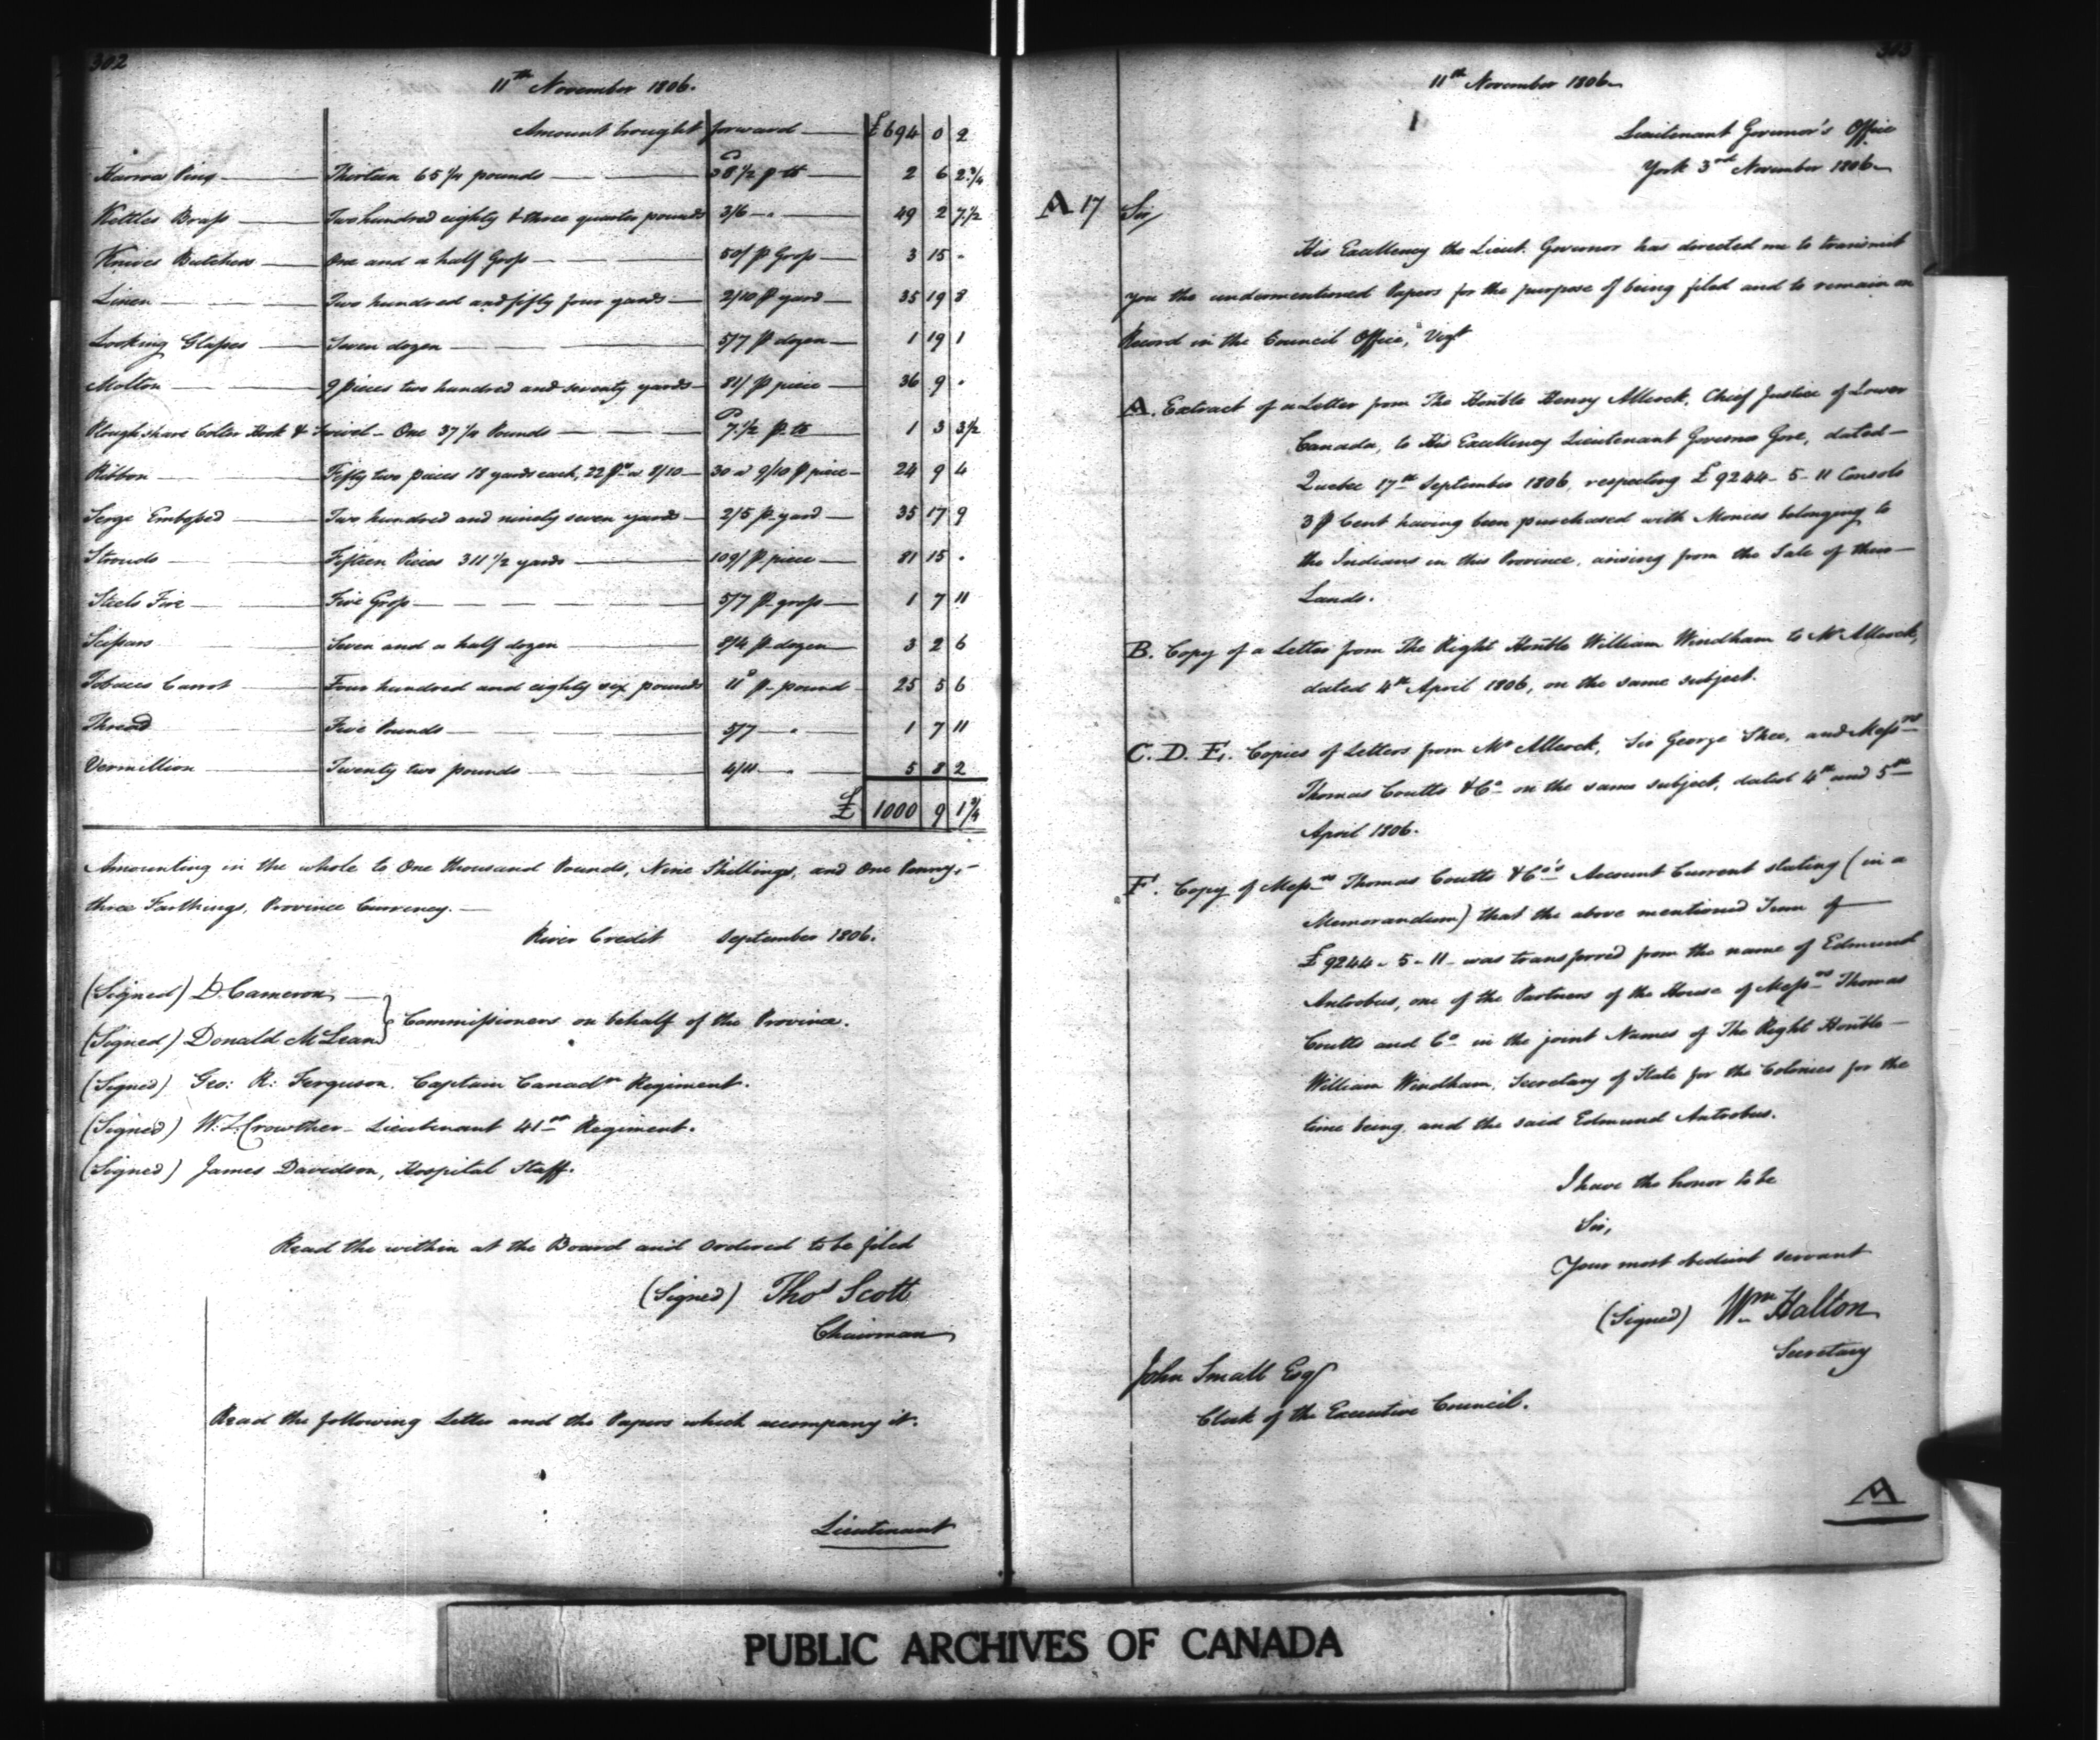 302
11th November 1806.
Amount brought forward £694 0 2
Harrow Pins Thirteen 65 1/4 pounds 8 1/2 p lb 2 6 2 3/4
Kettles Brass Two hundred eighty & three quarter pounds 3/6 " 49 2 7 1/2
Knives Butchers One and a half Gross 50/ p Gross 3 15 "
Linen Two hundred and fifty four yards 2/10 p yard 35 19 8
Looking Glasses Seven dozen 5/7 p dozen 1 19 1
Molton 9 pieces two hundred and seventy yards 81/ p piece 36 9 "
Ploughshare Colter Hook & Swivel One 37 1/4 Pounds 7 1/2 p lb 1 3 3 1/2
Ribbon Fifty two pieces 18 yards each, 22 ps a 8/10 30 a 9/10 p piece 24 9 4
Serge Embossed Two hundred and ninety seven yards 2/5 p yard 35 17 9
Strouds Fifteen Pieces 311 1/2 yards 109/ p piece 81 15 "
Steels Fire Five Gross 5/7 p gross 1 7 11
Scissars Seven and a half dozen 8/4 p dozen 3 2 6
Tobacco Carrot Four hundred and eighty six pounds p pound 25 5 6
Thread Five Pounds 5/7 " 1 7 11
Vermillion Twenty two pounds 4/11 " 5 8 2
£ 1000 9 1 3/4
Amounting in the whole to One thousand Pounds, Nine Shillings, and One Penny,
three Farthings, Province Currency.
River Credit September 1806.
(Signed) D. Cameron
(Signed) Donald McLean } Commissioners on behalf of the Province.
(Signed) Geo: R: Ferguson, Captain Canadn Regiment.
(Signed) W. Crowther Lieutenant 41st Regiment.
(Signed) James Davidson, Hospital Staff.
Read the within at the Board and Ordered to be filed
(Signed) Thos Scott
Chairman
Read the following Letter and the Papers which accompany it.
Lieutenant
303
11th November 1806
Lieutenant Governor's Office
York 3rd November 1806
A 17 Sir,
His Excellency the Lieut. Governor has directed me to transmit
you the undermentioned Papers for the purpose of being filed and to remain on
Record in the Council Office, Vizt
A. Extract of a Letter from The Honble Henry Allcock, Chief Justice of Lower
Canada, to His Excellency Lieutenant Governor Gore, dated
Quebec 17th September 1806, respecting £9244-5-11 Consols
3 p Cent having been purchased with Monies belonging to
the Indians in this Province, arising from the Sale of their
Lands.
B. Copy of a Letter from The Right Honble William Windham to Mr Allcock,
dated 4th April 1806, on the same subject.
C. D. E. Copies of Letters from Mr Allcock, Sir George Shee, and Messrs
Thomas Coutts & Co on the same subject, dated 4th and 5th
April 1806.
F. Copy of Messrs Thomas Coutts & Co's Account Current stating (in a
Memorandum) that the above mentioned Sum of
£9244-5-11 was transferred from the name of Edmund
Antrobus, one of the Partners of the House of Messrs Thomas
Coutts and Co in the joint Names of The Right Honble
William Windham, Secretary of State for the Colonies for the
time being, and the said Edmund Antrobus.
I have the honor to be
Sir,
Your most obedient servant
(Signed) Wm Halton
Secretary
John Small Esqr
Clerk of the Executive Council.
A
PUBLIC ARCHIVES OF CANADA